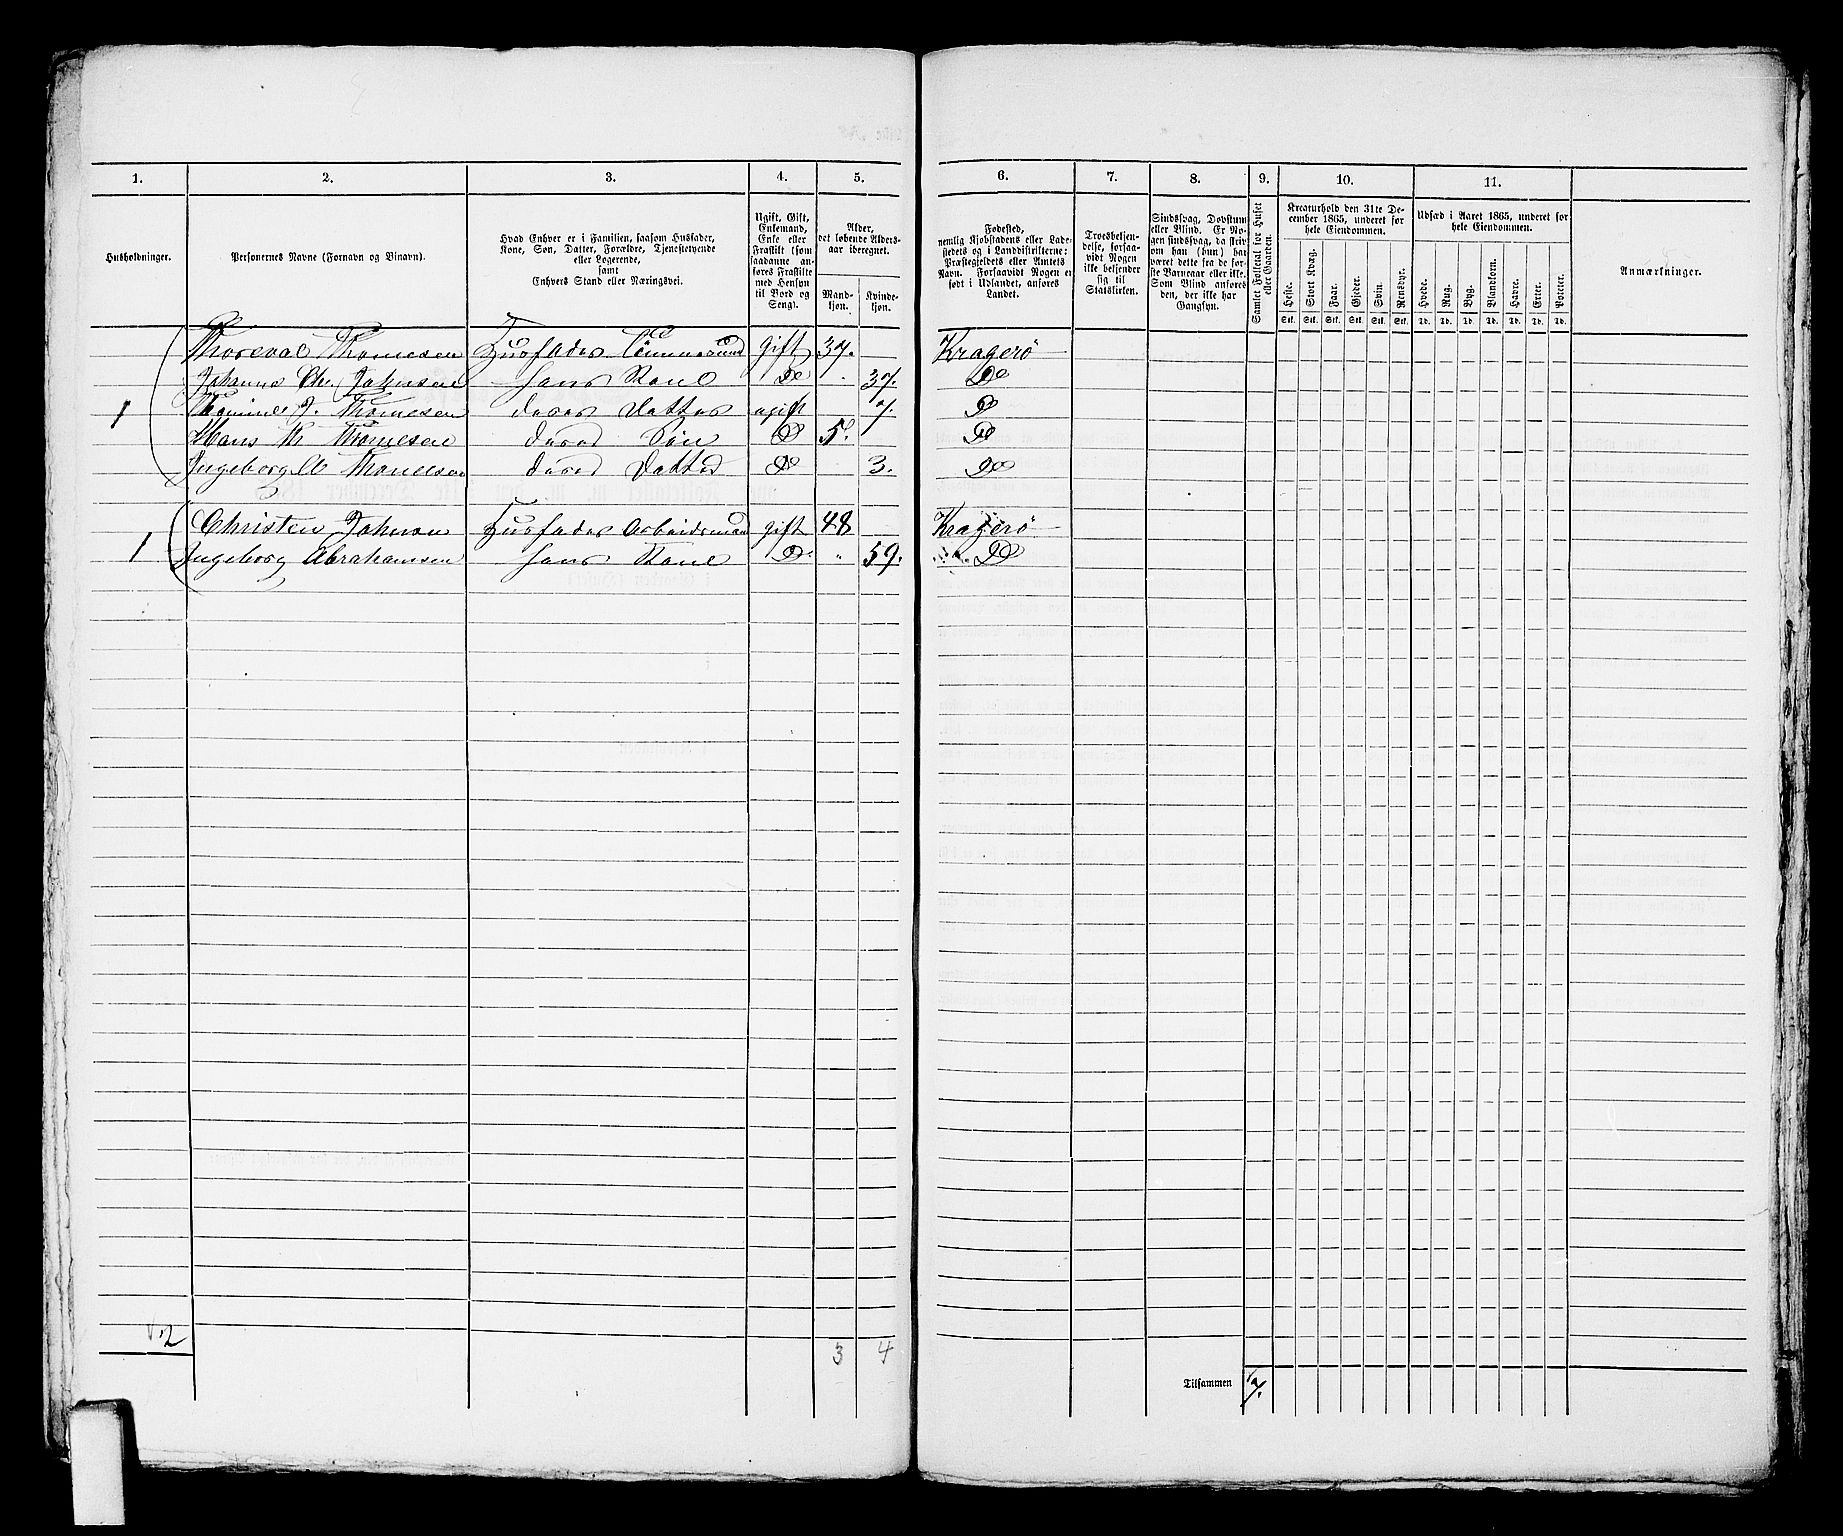 1. 2. 3. 4. 5. 6. 7. 8. 9. 10. 11.
Husholdninger.
Personernes Navne (Fornavn og Binavn).
Hvad Enhver er i Familien, saasom Husfader,
Kone, Søn, Datter, Forældre, Tjenestetyende
eller Logerende,
samt
Enhvers Stand eller Næringsvei.
Ugift, Gift,
Enkemand,
Enke eller
Fraskilt (som
saadanne an-
føres Fraskilte
med Hensyn
til Bord og
Seng).
Alder,
det løbende Alders-
aar iberegnet.
Mand-
kjøn.
Kvinde-
kjøn.
Fødested,
nemlig Kjøbstadens eller Lade-
stedets og i Landdistrikterne:
Præstegjeldets eller Amtets
Navn. Forsaavidt Nogen er
født i Udlandet, anføres
Landet.
Troesbekjen-
delse, forsaa-
vidt Nogen
ikke bekjender
sig til
Statskirken.
Sindssvag, Døvstum
eller Blind. Er No-
gen sindssvag, da skriv
om han (hun) har
været dette fra de før-
ste Barneaar eller ikke.
Som Blind anføres
den, der ikke har
Gangsyn.
Samlet Folketal for Huset
eller Gaarden.
Kreaturhold den 31te De-
cember 1865, underet for
hele Eiendommen.
Heste. Stort Kvæg. Faar. Gjeder. Svin. Rensdyr.
Stk. Stk. Stk. Stk. Stk. Stk.
Udsæd i Aaret 1865, underet for
hele Eiendommen.
Hvede. Rug. Byg. Blandkorn. Havre. Erter. Poteter.
Td. Td. Td. Td. Td. Td. Td.
Anmærkninger.
Thorval Thomesen Husfader Tømmermand gift 37. Kragerö
Johanne Chr. Johnsen hans Kone Do 37. Do
1 J. Thomesen deres Datter ugift 7. Do
Hans Th Thomesen deres Søn Do 5. Do
Ingeborg Thomesen deres Datter Do 3. Do
Christen Johnson Husfader Arbeidsmand gift 48 Kragerö
1 Ingeborg Abrahamsen hans Kone Do " 59. Do
2 3 4
Tilsammen 7.